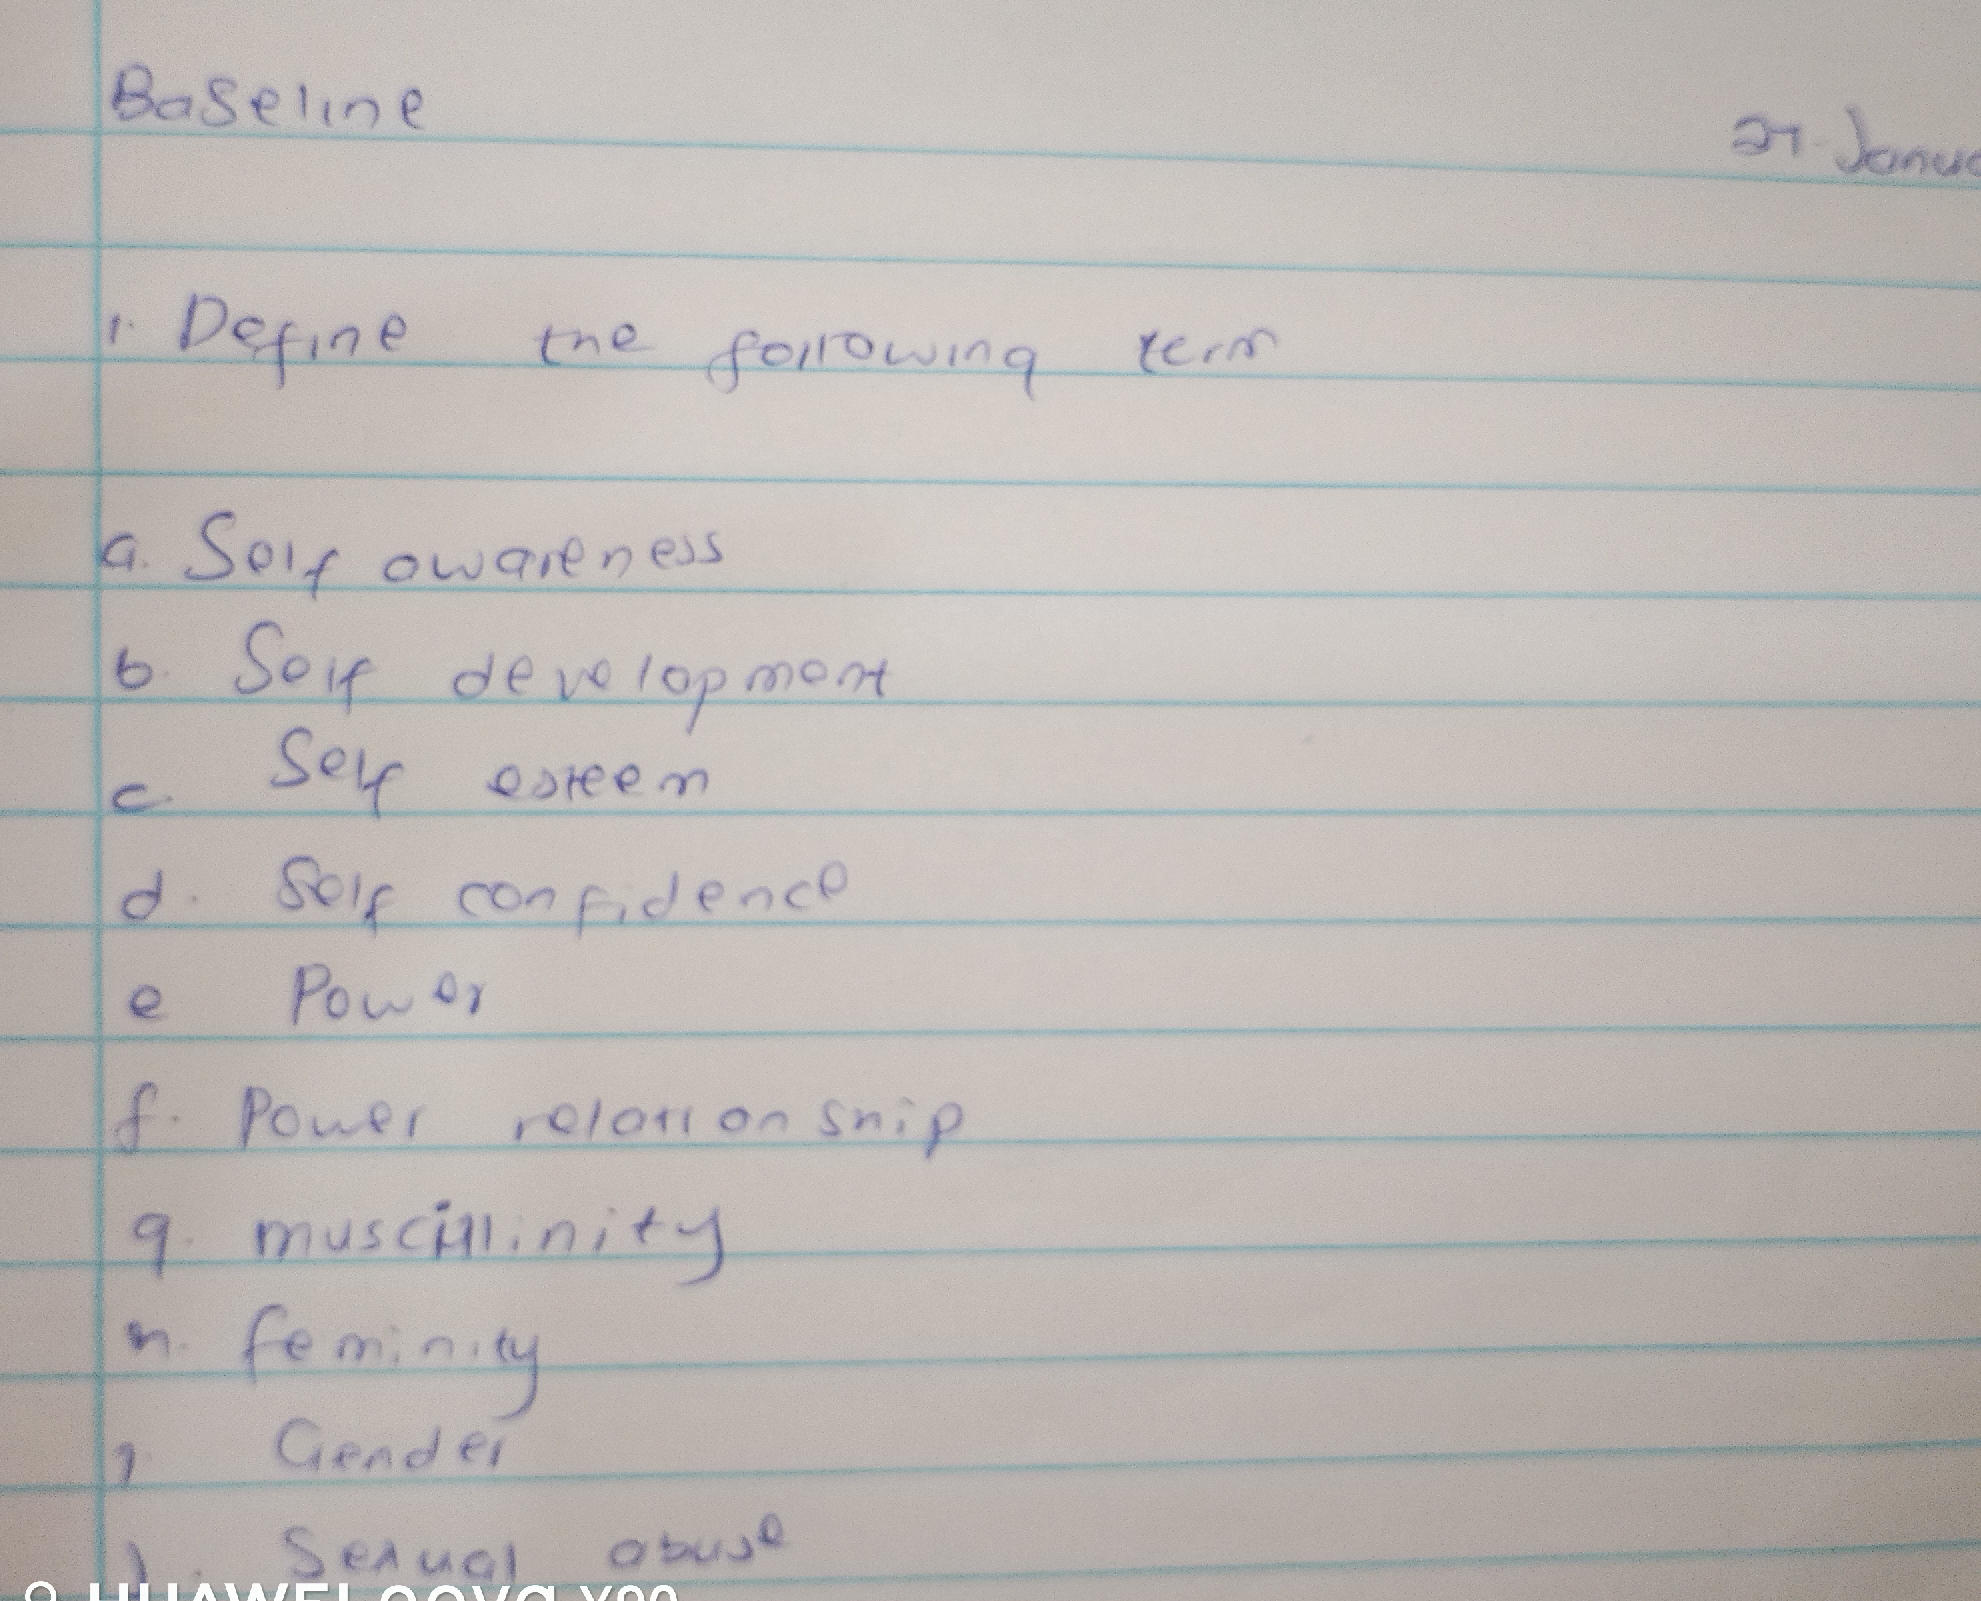 Baseline
21 Janua
1. Define the following term
a. Self awareness
b. Self development
c. Self esteem
d. Self confidence
e Power
f. Power relationship
g. muscillinity
h. feminity
i Gender
j. Sexual abuse